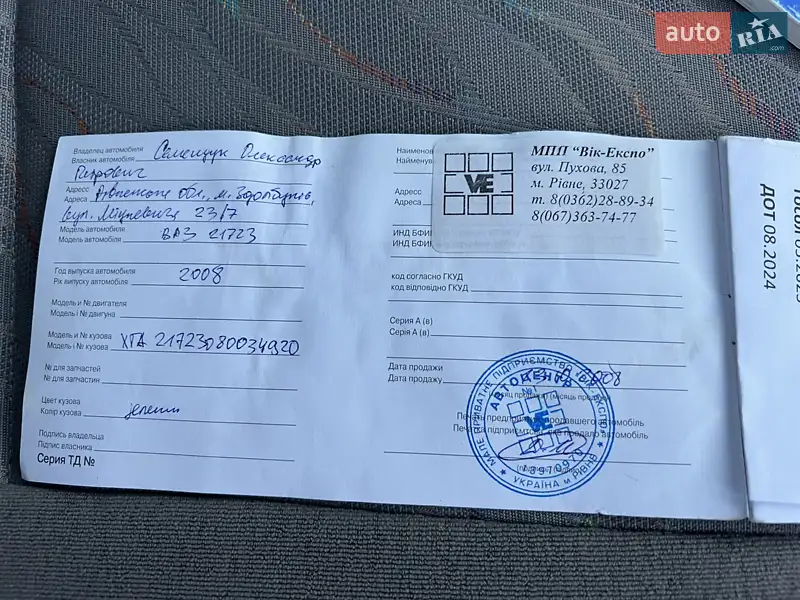 auto RIA.com
Владелец автомобиля
Власник автомобіля Семещук Олександр
Петрович
Адресс
Адреса Рівненська обл., м. Здолбунів,
вул. Міцкевича 23/7
Модель автомобиля
Модель автомобіля ВАЗ 21723
Год выпуска автомобиля
Рік випуску автомобіля 2008
Модель и № двигателя
Модель і № двигуна
Модель и № кузова
Модель і № кузова ХТА 21723080034920
№ для запчастей
№ для запчастин
Цвет кузова
Колір кузова зелений
Подпись владельца
Підпис власника
Серия ТД №
Наименов
Найменув
Адресс
Адреса
МПП "Вік-Експо"
вул. Пухова, 85
м. Рівне, 33027
т. 8(0362)28-89-34
8(067)363-74-77
VE
ИНД БФИ
ІНД БФ
код согласно ГКУД
код відповідно ГКУД
Серия А (в)
Серія А (в)
Дата продажи
Дата продажу 2008
(місяць продажу)
Печать предпр продавшего автомобіль
Печатка підприємст що продало автомобіль
МАЛЕ ПРИВАТНЕ ПІДПРИЄМСТВО "ВІК-ЕКСПО"
АВТОЦЕНТР
№1
VE
13970979
УКРАЇНА м РІВНЕ
ДОТ 08.2024